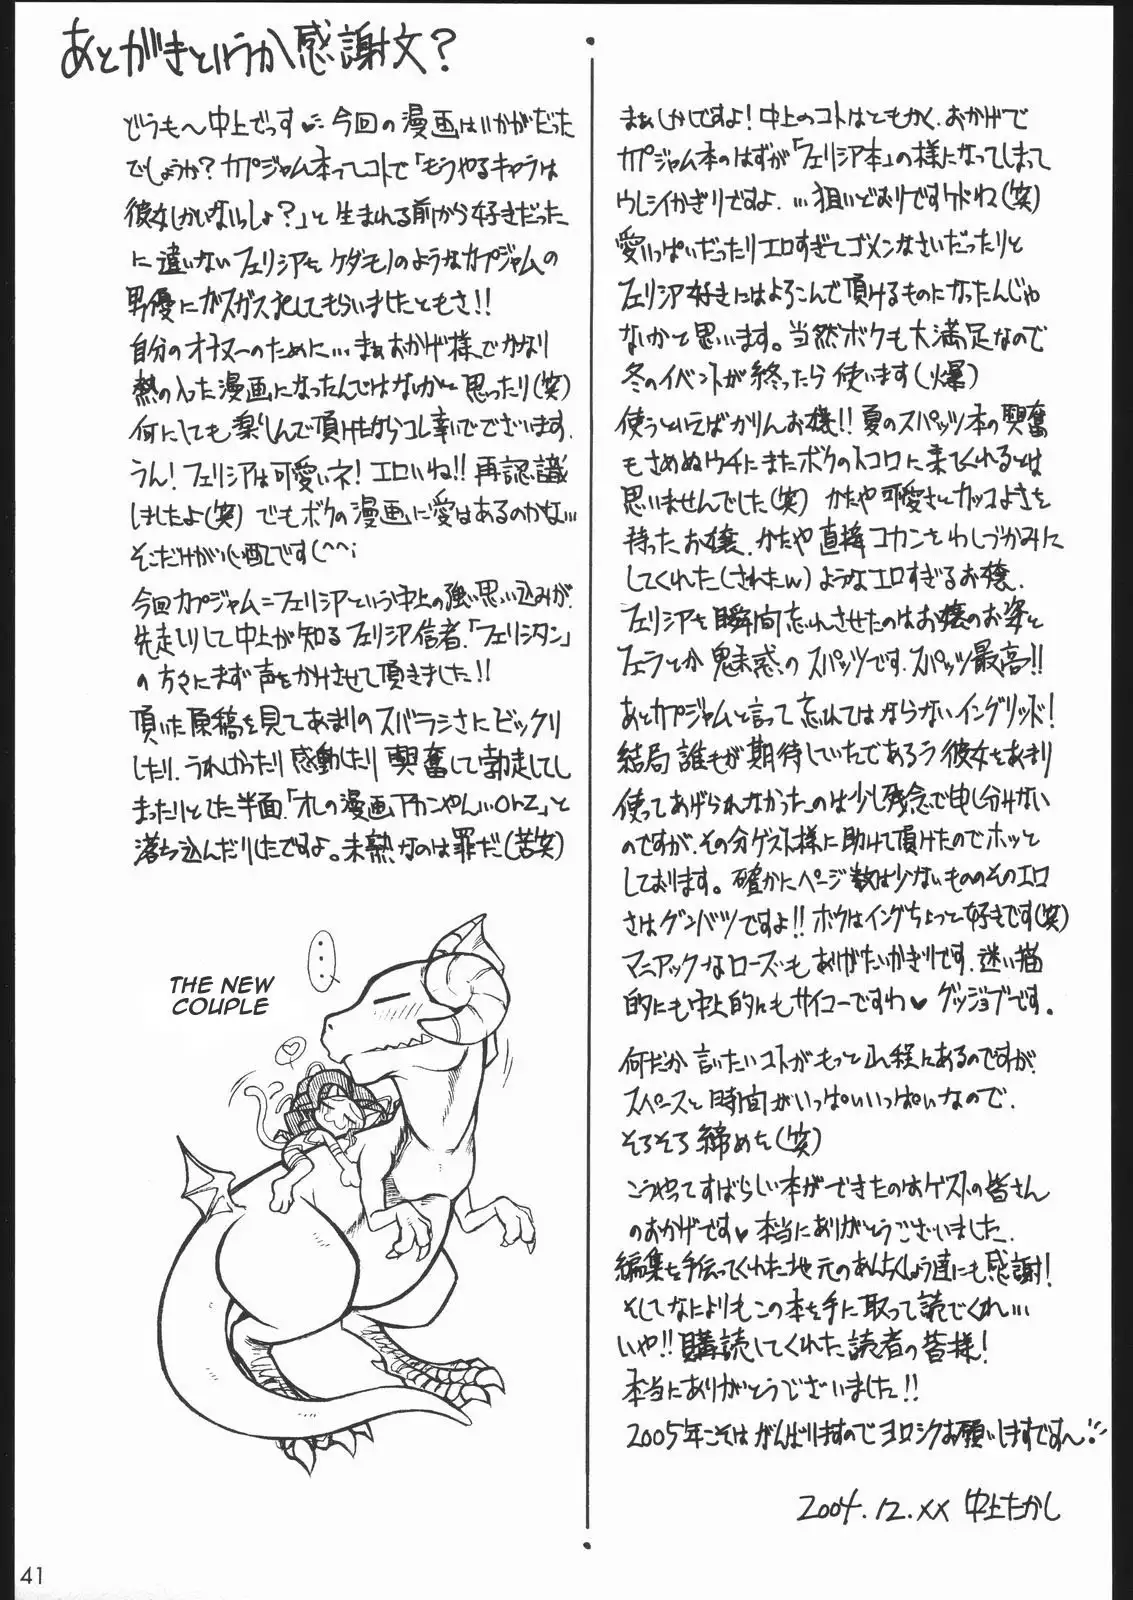 あとがきというか感謝文?
どうも～中上でっす♥ 今回の漫画はいかがだった
でしょうか?カプジャム本ってコトで「もうやるキャラは
彼女しかいないっしょ?」と 生まれる前から好きだった
に違いないフェリシアをケダモノのようなカプジャムの
男優にガスガス犯してもらいましたともさ!!
自分のオナヌーのために…まぁおかげ様でかなり
熱の入った漫画になったんではないかと思ったり(笑)
何にしても楽しんで頂けたならコレ幸いでございます.
うん!フェリシアは可愛いネ!エロいね!!再認識
しましたよ(笑) でもボクの漫画に愛はあるのかな…
そこだけが心配です(^^;
今回カプジャム=フェリシアという中上の強い思い込みが.
先走りして中上が知るフェリシア信者.「フェリシタン」
の方々にまず声をかけさせて頂きました!!
頂いた原稿を見てあまりのスバラシさにビックリ
したり.うれしかったり 感動したり 興奮して勃走してし
まったりとした半面「オレの漫画アカンやん…orz」と
落ち込んだりしたですよ。未熟なのは罪だ(苦笑)
...
THE NEW
COUPLE
41
まぁしかですよ!中上のコトはともかく.おかげで
カプジャム本のはずが「フェリシア本」の様になってしまって
ウレシイかぎりですよ.…狙いどおりですけドね(笑)
愛いっぱいだったりエロすぎてゴメンなさいだったりと
フェリシア好きにはよろこんで頂けるものになったんじゃ
ないかと思います。当然ボクも大満足なので
冬のイベントが終ったら使います(爆)
使うといえばかりんお嬢!!夏のスパッツ本の興奮
もさめぬウチにまたボクのトコロに来てくれるとは
思いませんでした(笑) かたや可愛さとカッコよさを
持ったお嬢.かたや直接コカンをわしづかみに
してくれた(されたw)ようなエロすぎるお嬢.
フェリシアを瞬間忘れさせたのはお嬢のお姿と
フェラとか魅惑のスパッツです.スパッツ最高!!
あとカプジャムと言って忘れてはならないイングリッド!
結局誰もが期待していたであろう彼女をあまり
使ってあげられなかったのは少し残念で申し分けない
のですが.その分ゲスト様に助けて頂けたのでホッと
しております。確かにページ数は少ないもののそのエロ
さはグンバツですよ!!ボクはイングちょっと好きです(笑)
マニアックなローズもありがたいかぎりです.迷い猫
的にも中上的にもサイコーですわ♥グッジョブです。
何だか言いたいコトがもっと山程にあるのですが
スペースと時間がいっぱいいっぱいなので.
そろそろ締めを(笑)
こうやってすばらしい本ができたのはゲストの皆さん
のおかげです♥本当にありがとうございました.
編集を手伝ってくれた地元のあんちくしょう達にも感謝!
そしてなによりもこの本を手に取って読でくれ…
いや!!購読してくれた読者の皆様!
本当にありがとうございました!!
2005年こそはがんばりますのでヨロシクお願いしますです～!!
2004.12.XX 中上たかし